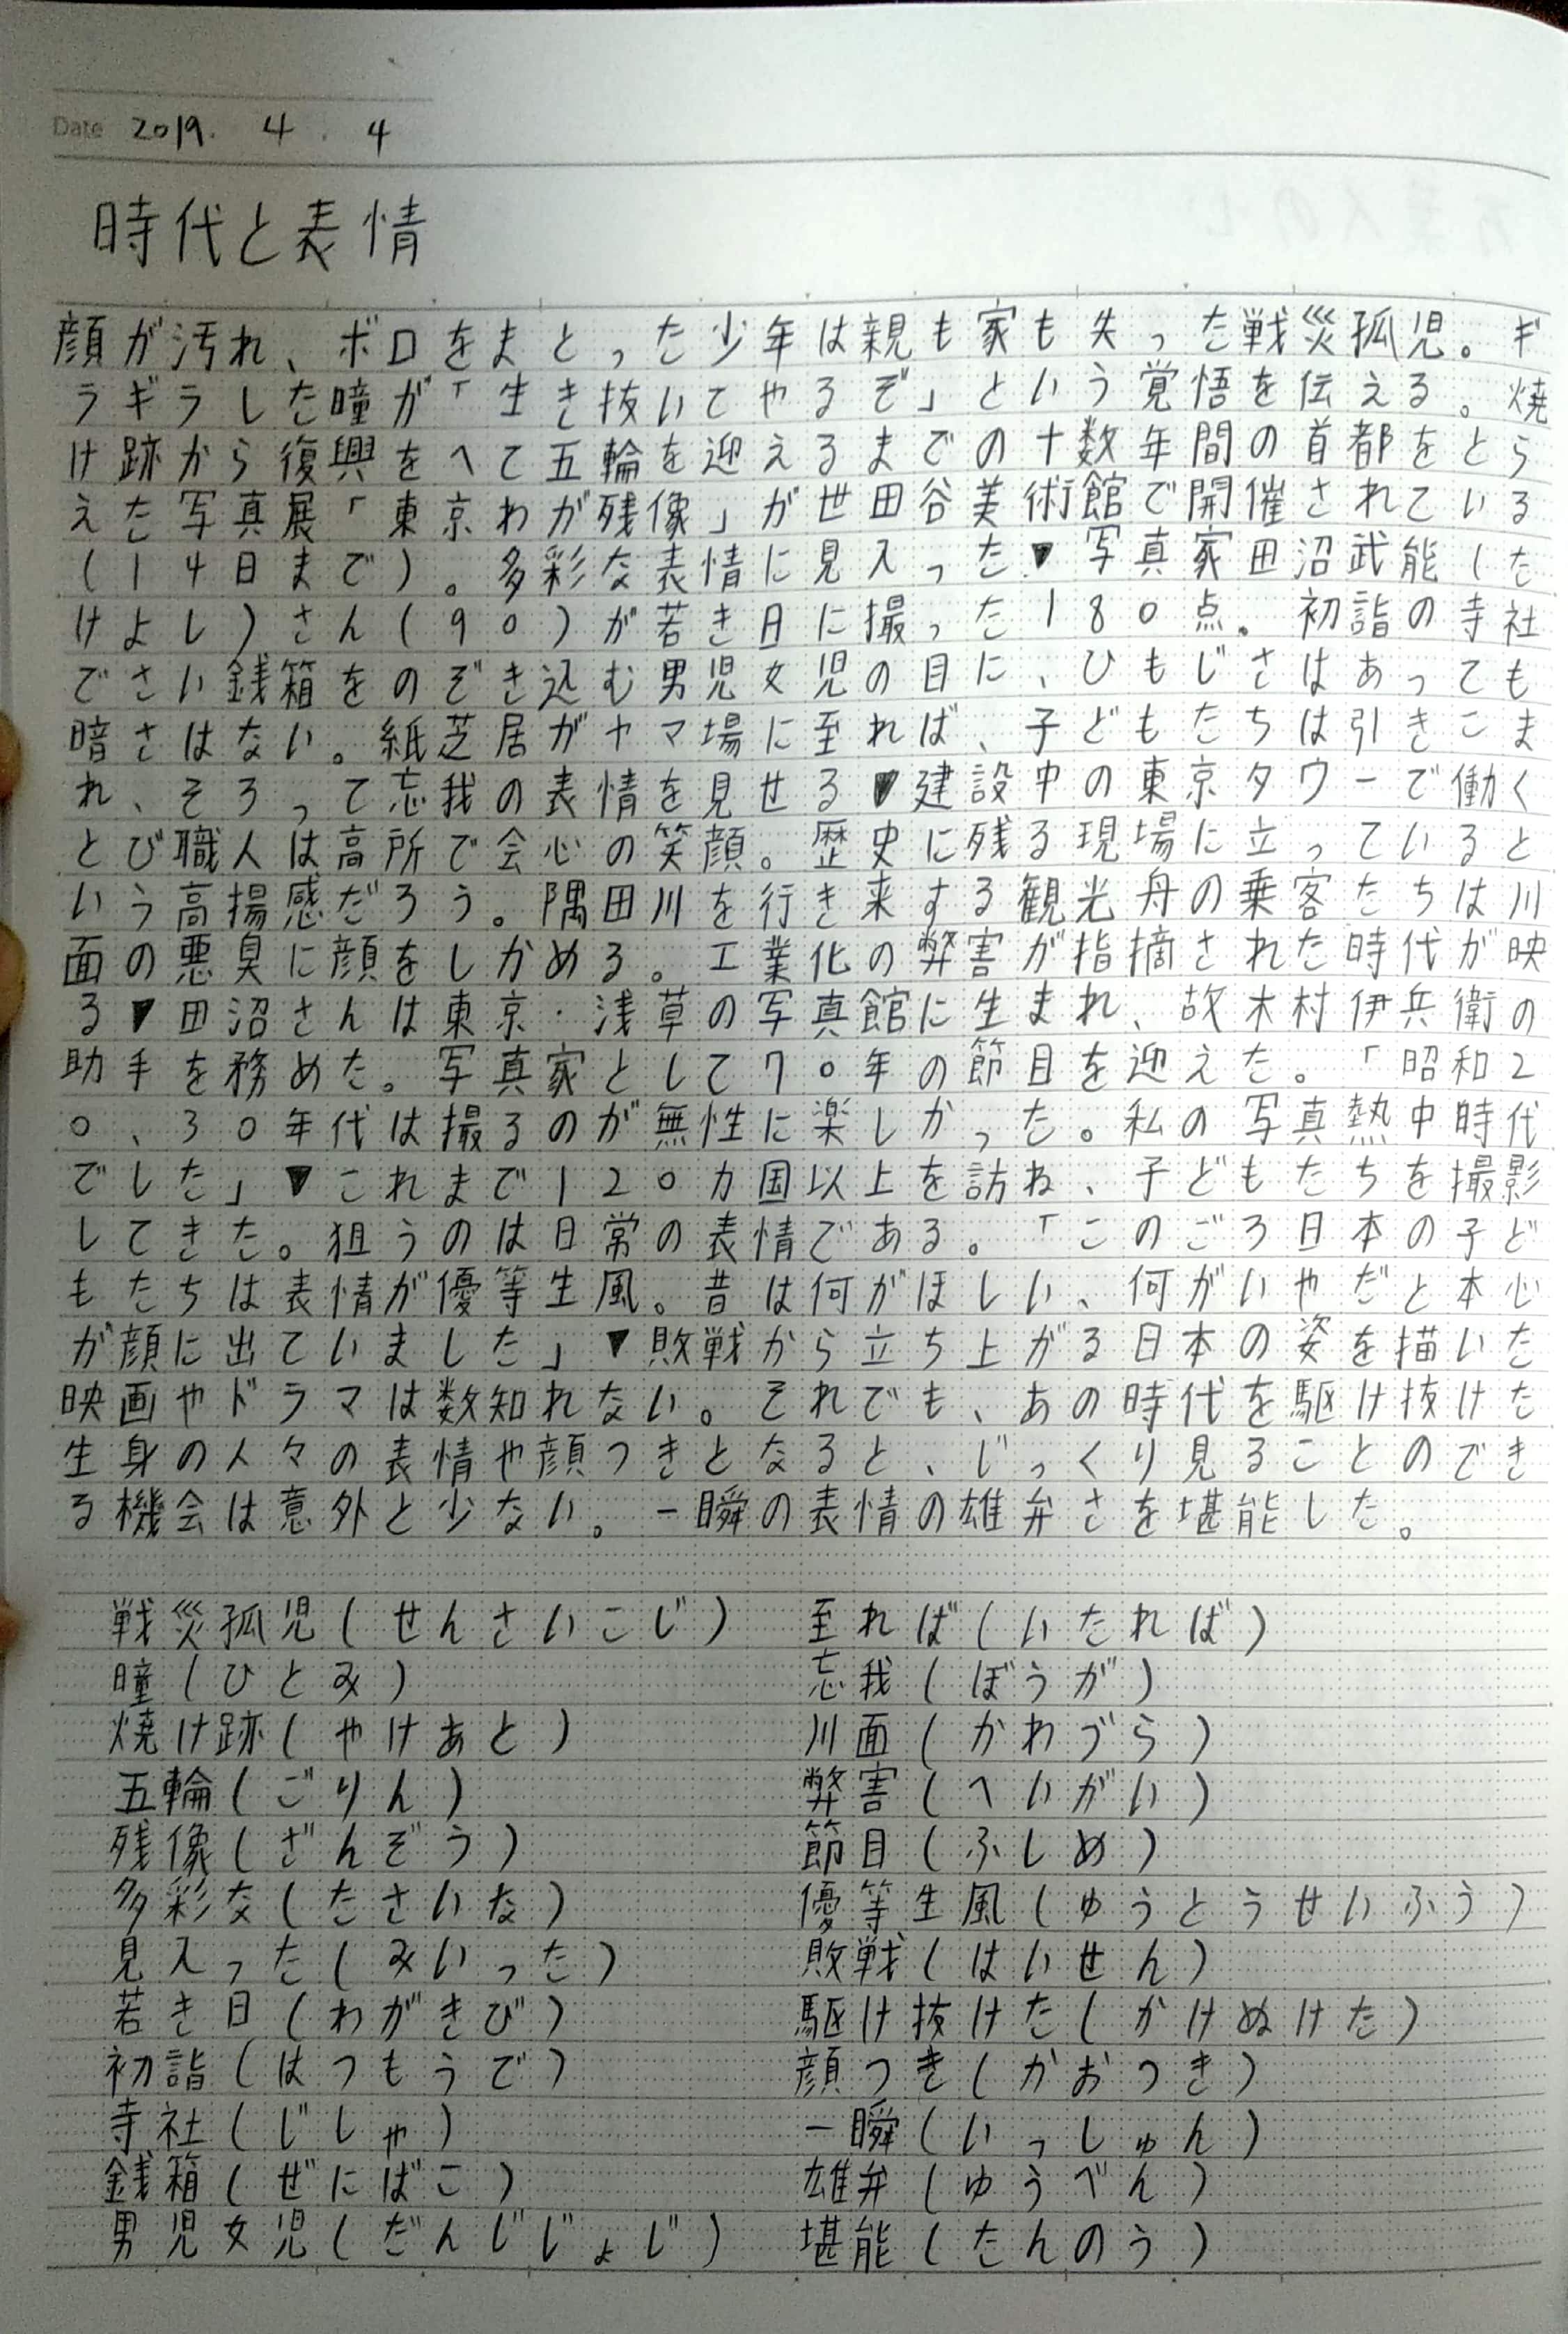 Date 2019. 4. 4
時代と表情
顔が汚れ、ボロをまとった少年は親も家も失った戦災孤児。ギ
ラギラした瞳が「生き抜いてやるぞ」という覚悟を伝える。焼
け跡から復興をへて五輪を迎えるまでの十数年間の首都をとら
えた写真展「東京わが残像」が世田谷美術館で開催されている
(14日まで)。多彩な表情に見入った▼写真家田沼武能(た
けよし)さん(90)が若き日に撮った180点。初詣の寺社
でさい銭箱をのぞき込む男児女児の目に、ひもじさはあっても
暗さはない。紙芝居がヤマ場に至れば、子どもたちは引きこま
れ、そろって忘我の表情を見せる▼建設中の東京タワーで働く
とび職人は高所で会心の笑顔。歴史に残る現場に立っていると
いう高揚感だろう。隅田川を行き来する観光舟の乗客たちは川
面の悪臭に顔をしかめる。工業化の弊害が指摘された時代が映
る▼田沼さんは東京・浅草の写真館に生まれ、故木村伊兵衛の
助手を務めた。写真家として70年の節目を迎えた。「昭和2
0、30年代は撮るのが無性に楽しかった。私の写真熱中時代
でした」▼これまで120カ国以上を訪ね、子どもたちを撮影
してきた。狙うのは日常の表情である。「このごろ日本の子ど
もたちは表情が優等生風。昔は何がほしい、何がいやだと本心
が顔に出ていました」▼敗戦から立ち上がる日本の姿を描いた
映画やドラマは数知れない。それでも、あの時代を駆け抜けた
生身の人々の表情や顔つきとなると、じっくり見ることのでき
る機会は意外と少ない。一瞬の表情の雄弁さを堪能した。
戦災孤児(せんさいこじ)
瞳(ひとみ)
焼け跡(やけあと)
五輪(ごりん)
残像(ざんぞう)
多彩な(たさいな)
見入った(みいった)
若き日(わがきび)
初詣(はつもうで)
寺社(じしゃ)
銭箱(ぜにばこ)
男児女児(だんじじょじ)
至れば(いたれば)
忘我(ぼうが)
川面(かわづら)
弊害(へいがい)
節目(ふしめ)
優等生風(ゆうとうせいふう)
敗戦(はいせん)
駆け抜けた(かけぬけた)
顔つき(かおつき)
一瞬(いっしゅん)
雄弁(ゆうべん)
堪能(たんのう)